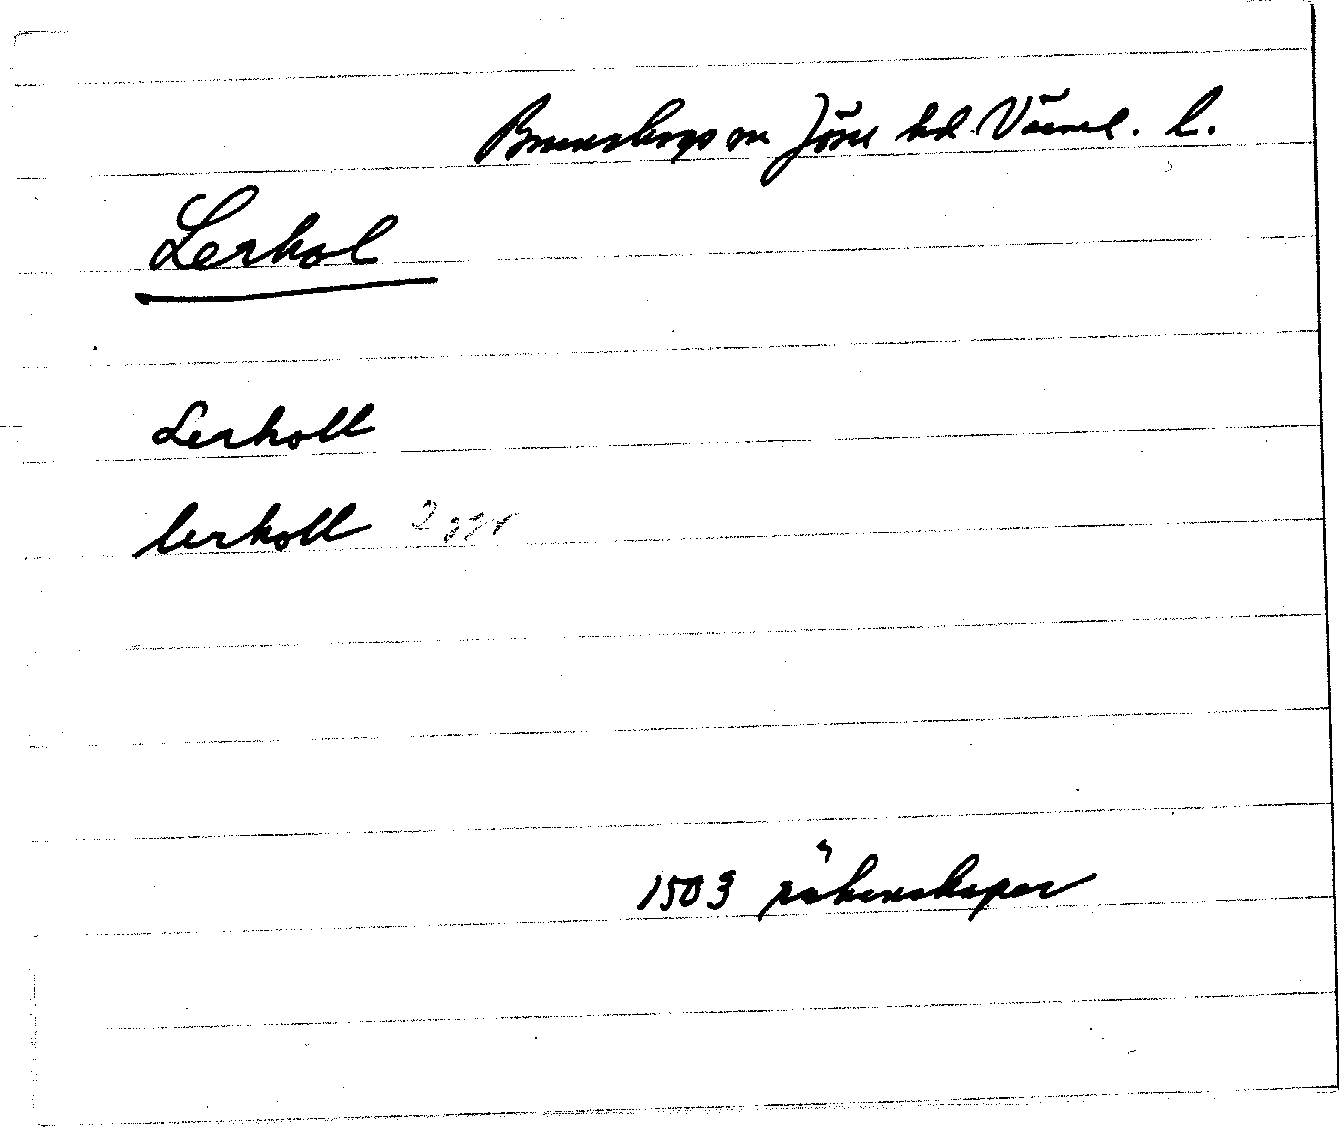 Brunsbergs sn Jösse hd. Värml. l.
Lerhol
Lerholl
lerholl 2 ggr
1503 räkenskaper